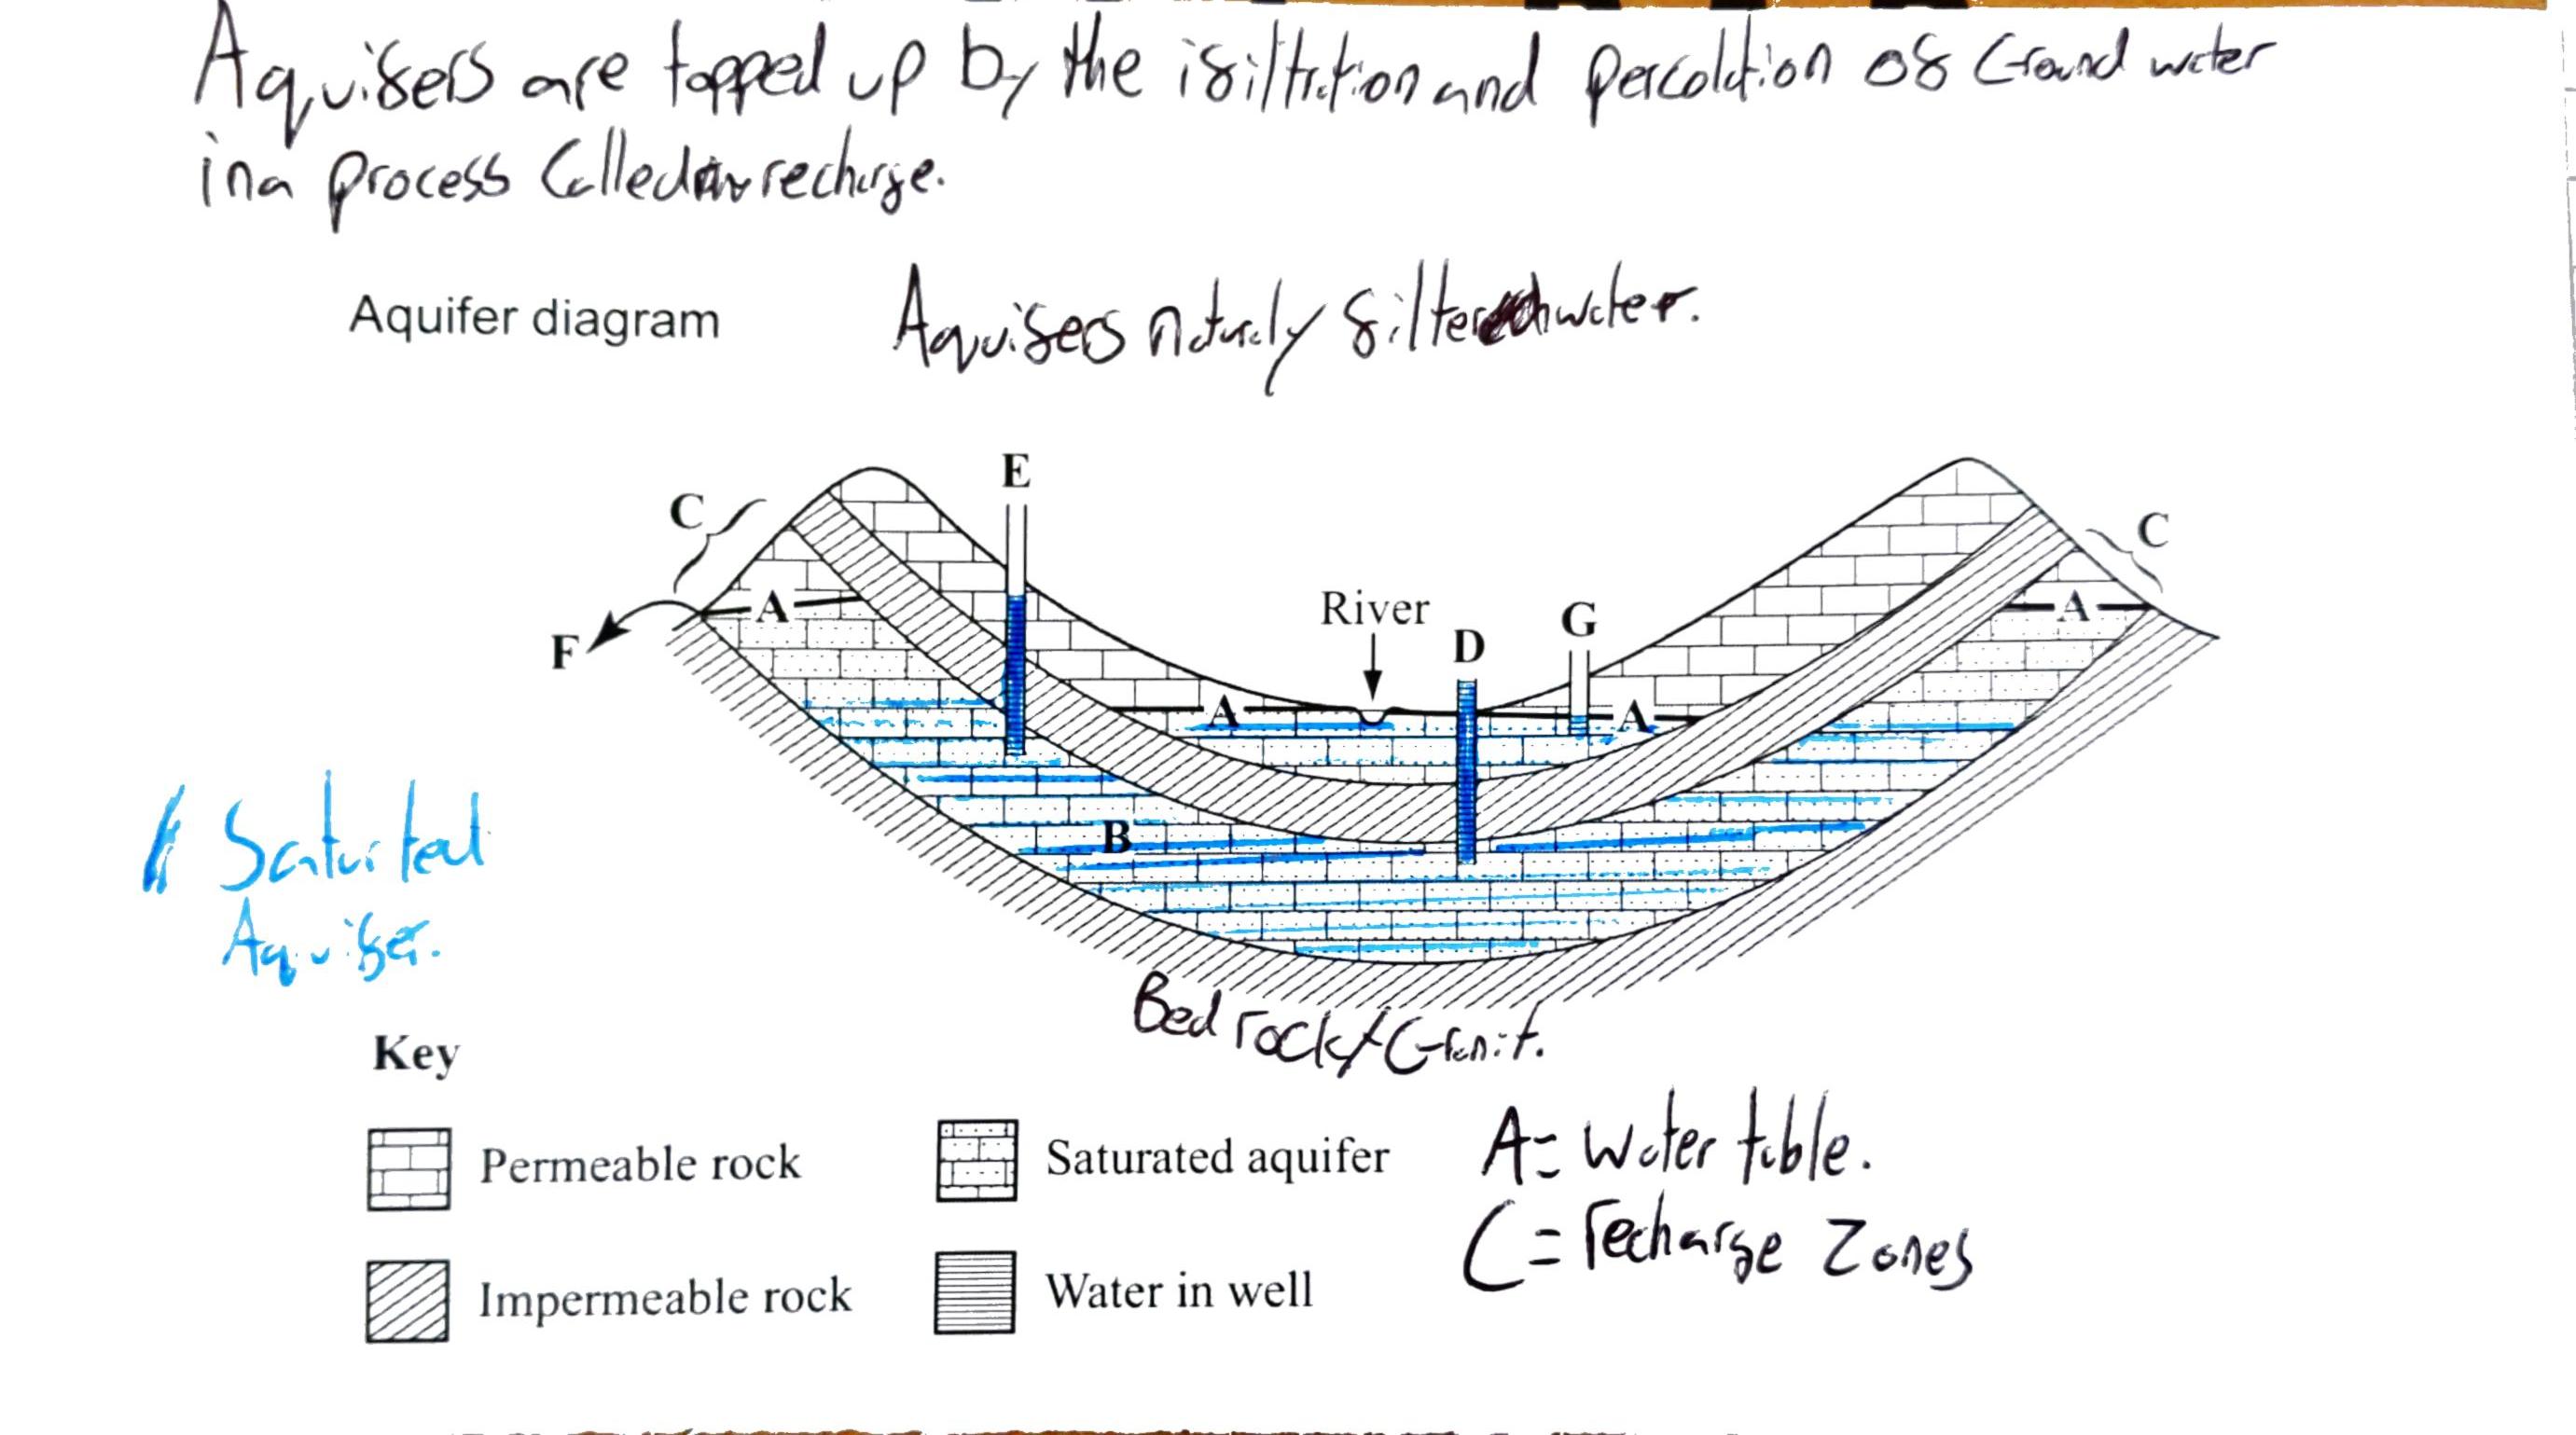 Aquifers are topped up by the ifiltration and percolation of Ground water
in a process called recharge.
Aquifer diagram
Aquifers naturaly filter water.
E
C
C
A
A
River
G
D
F
A
A
B
Saturted
Aquifer.
Bedrock/Granit.
Key
Permeable rock
Saturated aquifer
Impermeable rock
Water in well
A= Water table.
C= recharge Zones